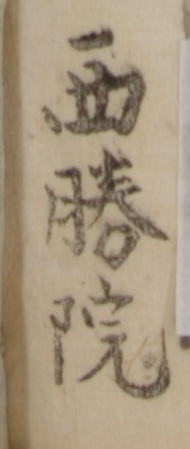 西勝院